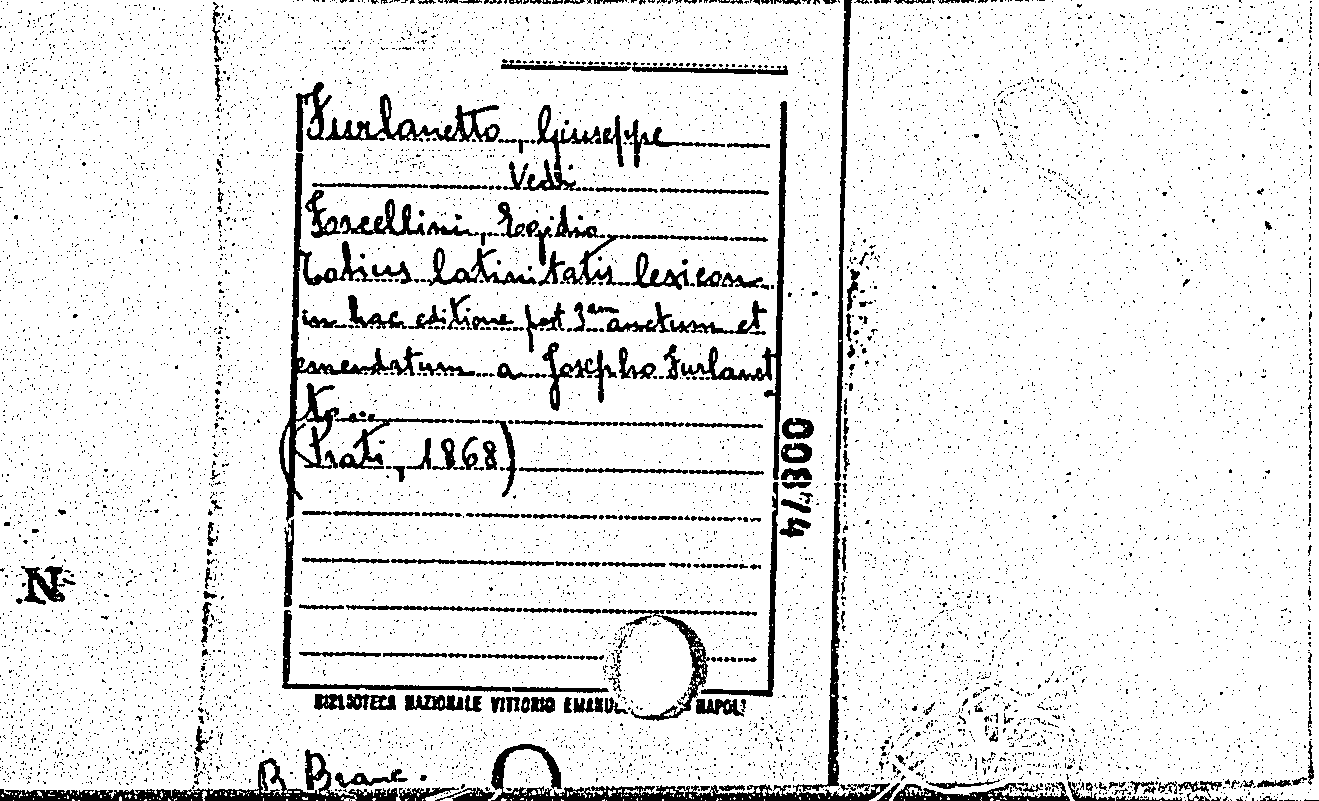 Furlanetto, Giuseppe
Vedi
Forcellini, Egidio
Totius latinitatis lexicon
in hac editione post 3am auctum et
emendatum a Josepho Furlanet
to...
(Prati, 1868)
00874
N
BIBLIOTECA NAZIONALE VITTORIO NAPOLI
B. Branc.